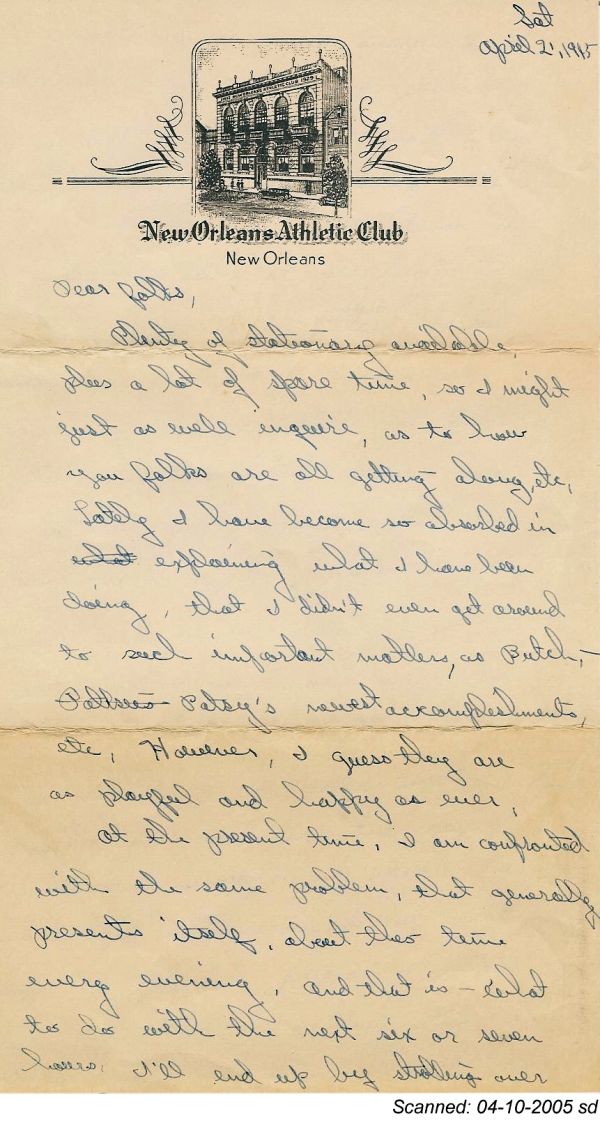 Sat
April 21, 1945
New Orleans Athletic Club
New Orleans
Dear folks,
Plenty of stationary available,
plus a lot of spare time, so I might
just as well enquire, as to how
you folks are all getting along, etc,
Lately I have become so absorbed in
what explaining what I have been
doing, that I didn't even get around
to such important matters, as Butch, -
Patsy's newest accomplishments,
etc, However, I guess they are
as playful and happy as ever,
at the present time, I am confronted
with the same problem, that generally
presents itself, about this time
every evening, and that is - what
to do with the next six or seven
hours. I'll end up by strolling over
Scanned: 04-10-2005 sd